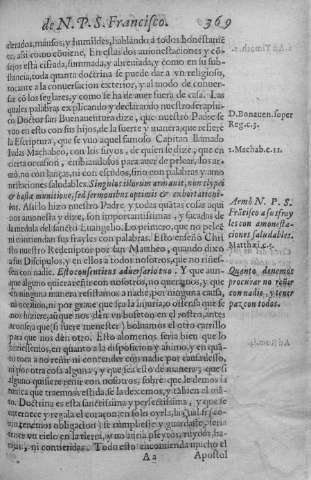 de N. P. S. Francisco. 369
derados, mansos, y humildes, hablando à todos honestamente
te, asi como conuiene. En estas dos amonestaciones y cō
sejos está cifrada, summada, y abreuiada, y como en su sub-
stancia, toda quanta doctrina se puede dar a vn religioso,
tocante a la conuersacion exterior, y al modo de conuer-
sar cō los seglares, y como se ha de auer fuera de casa. Las
quales palabras explicando y declarando nuestro seraphi-
co Doctor san Buenauentura dize, que nuestro Padre se
vuo en esto con sus hijos, de la suerte y manera, que refiere
la Escriptura, que se vuo aquel famoso Capitan llamado
Iudas Machabeo, con los suyos, de quien se dize, que en
cierta occasion, embiandolos para auer de pelear, los ar-
mò, no con lanças, ni con escudos, sino con palabras y amo
nestaciones saludables. Singulos illorum armauit, non clypei
& hastæ munitione, sed sermonibus optimis & exhortationi-
bus. Asi lo hizo nuestro Padre, y todas quātas cosas aqui
nos amonesta y dize, son importantissimas, y sacadas de
la medula del sancto Euangelio. Lo primero, que no pelee
ni contiendan sus frayles con palabras. Esto enseñò Chri
sto nuestro Redemptor por san Mattheo, quando dixo
a sus Discipulos, y en ellos a todos nosotros, que no riñes-
sen con nadie. Esto consentiens aduersario tuo. Y que aun-
que alguno quiera reñir con nosotros, no queramos, y que
en ninguna manera resistamos a nadie, por ninguna causa,
ni occasion, ni por graue que sea la injuria, o offensa que se
nos hiziere, aũque nos dén vn bofeton en el rostro, antes
aconseja que (si fuere menester) boluamos el otro carrillo
para que nos den otro. Esto alomenos seria bien que lo
hiziessemos, en quanto a la disposicion y animo, y en quā-
to a no reñir ni contender con nadie por causa desto,
ni por otra cosa alguna, y que sea esto de manera, que si
alguno quisiere reñir con nosotros, sobre que le demos la
tunica que traemos vestida, se la dexemos, y tambien el mā
to. Doctrina es esta sanctissima y perfectissima, y que se
enternece y regala el coraçon, en solo oyrla, la qual si (co-
mo tenemos obligacion) se cumpliesse y guardasse, seria
tener vn cielo en la tierra, y no auria pleytos, ruydos, ha-
 , ni contiendas. Todo esto encomienda mucho el
Aa Apostol
D. Bonauen. super
Reg. c. 3.
1. Machab. c. 15.
Armò N. P. S.
Frācisco a sus fray
les con amonesta-
ciones saludables.
Matthæi. c. 5.
Quanto deuemos
procurar no reñir
con nadie, y tener
paz con todos.